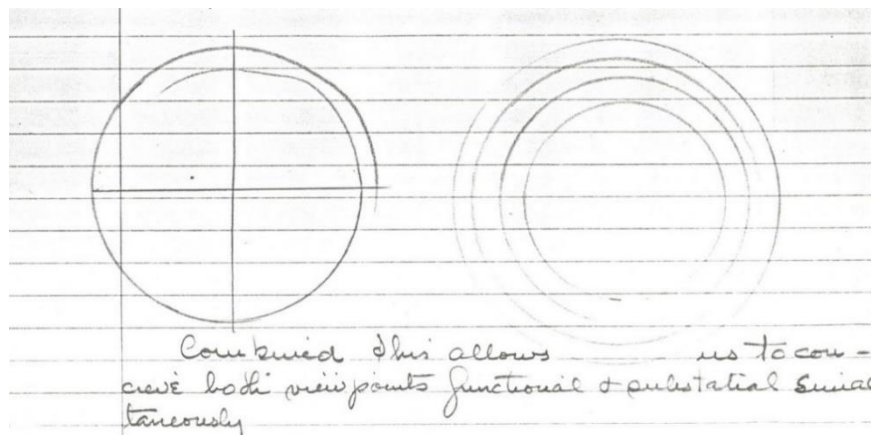 Combined this allows us to con-
ceive both viewpoints functional & substatial simul
taneously